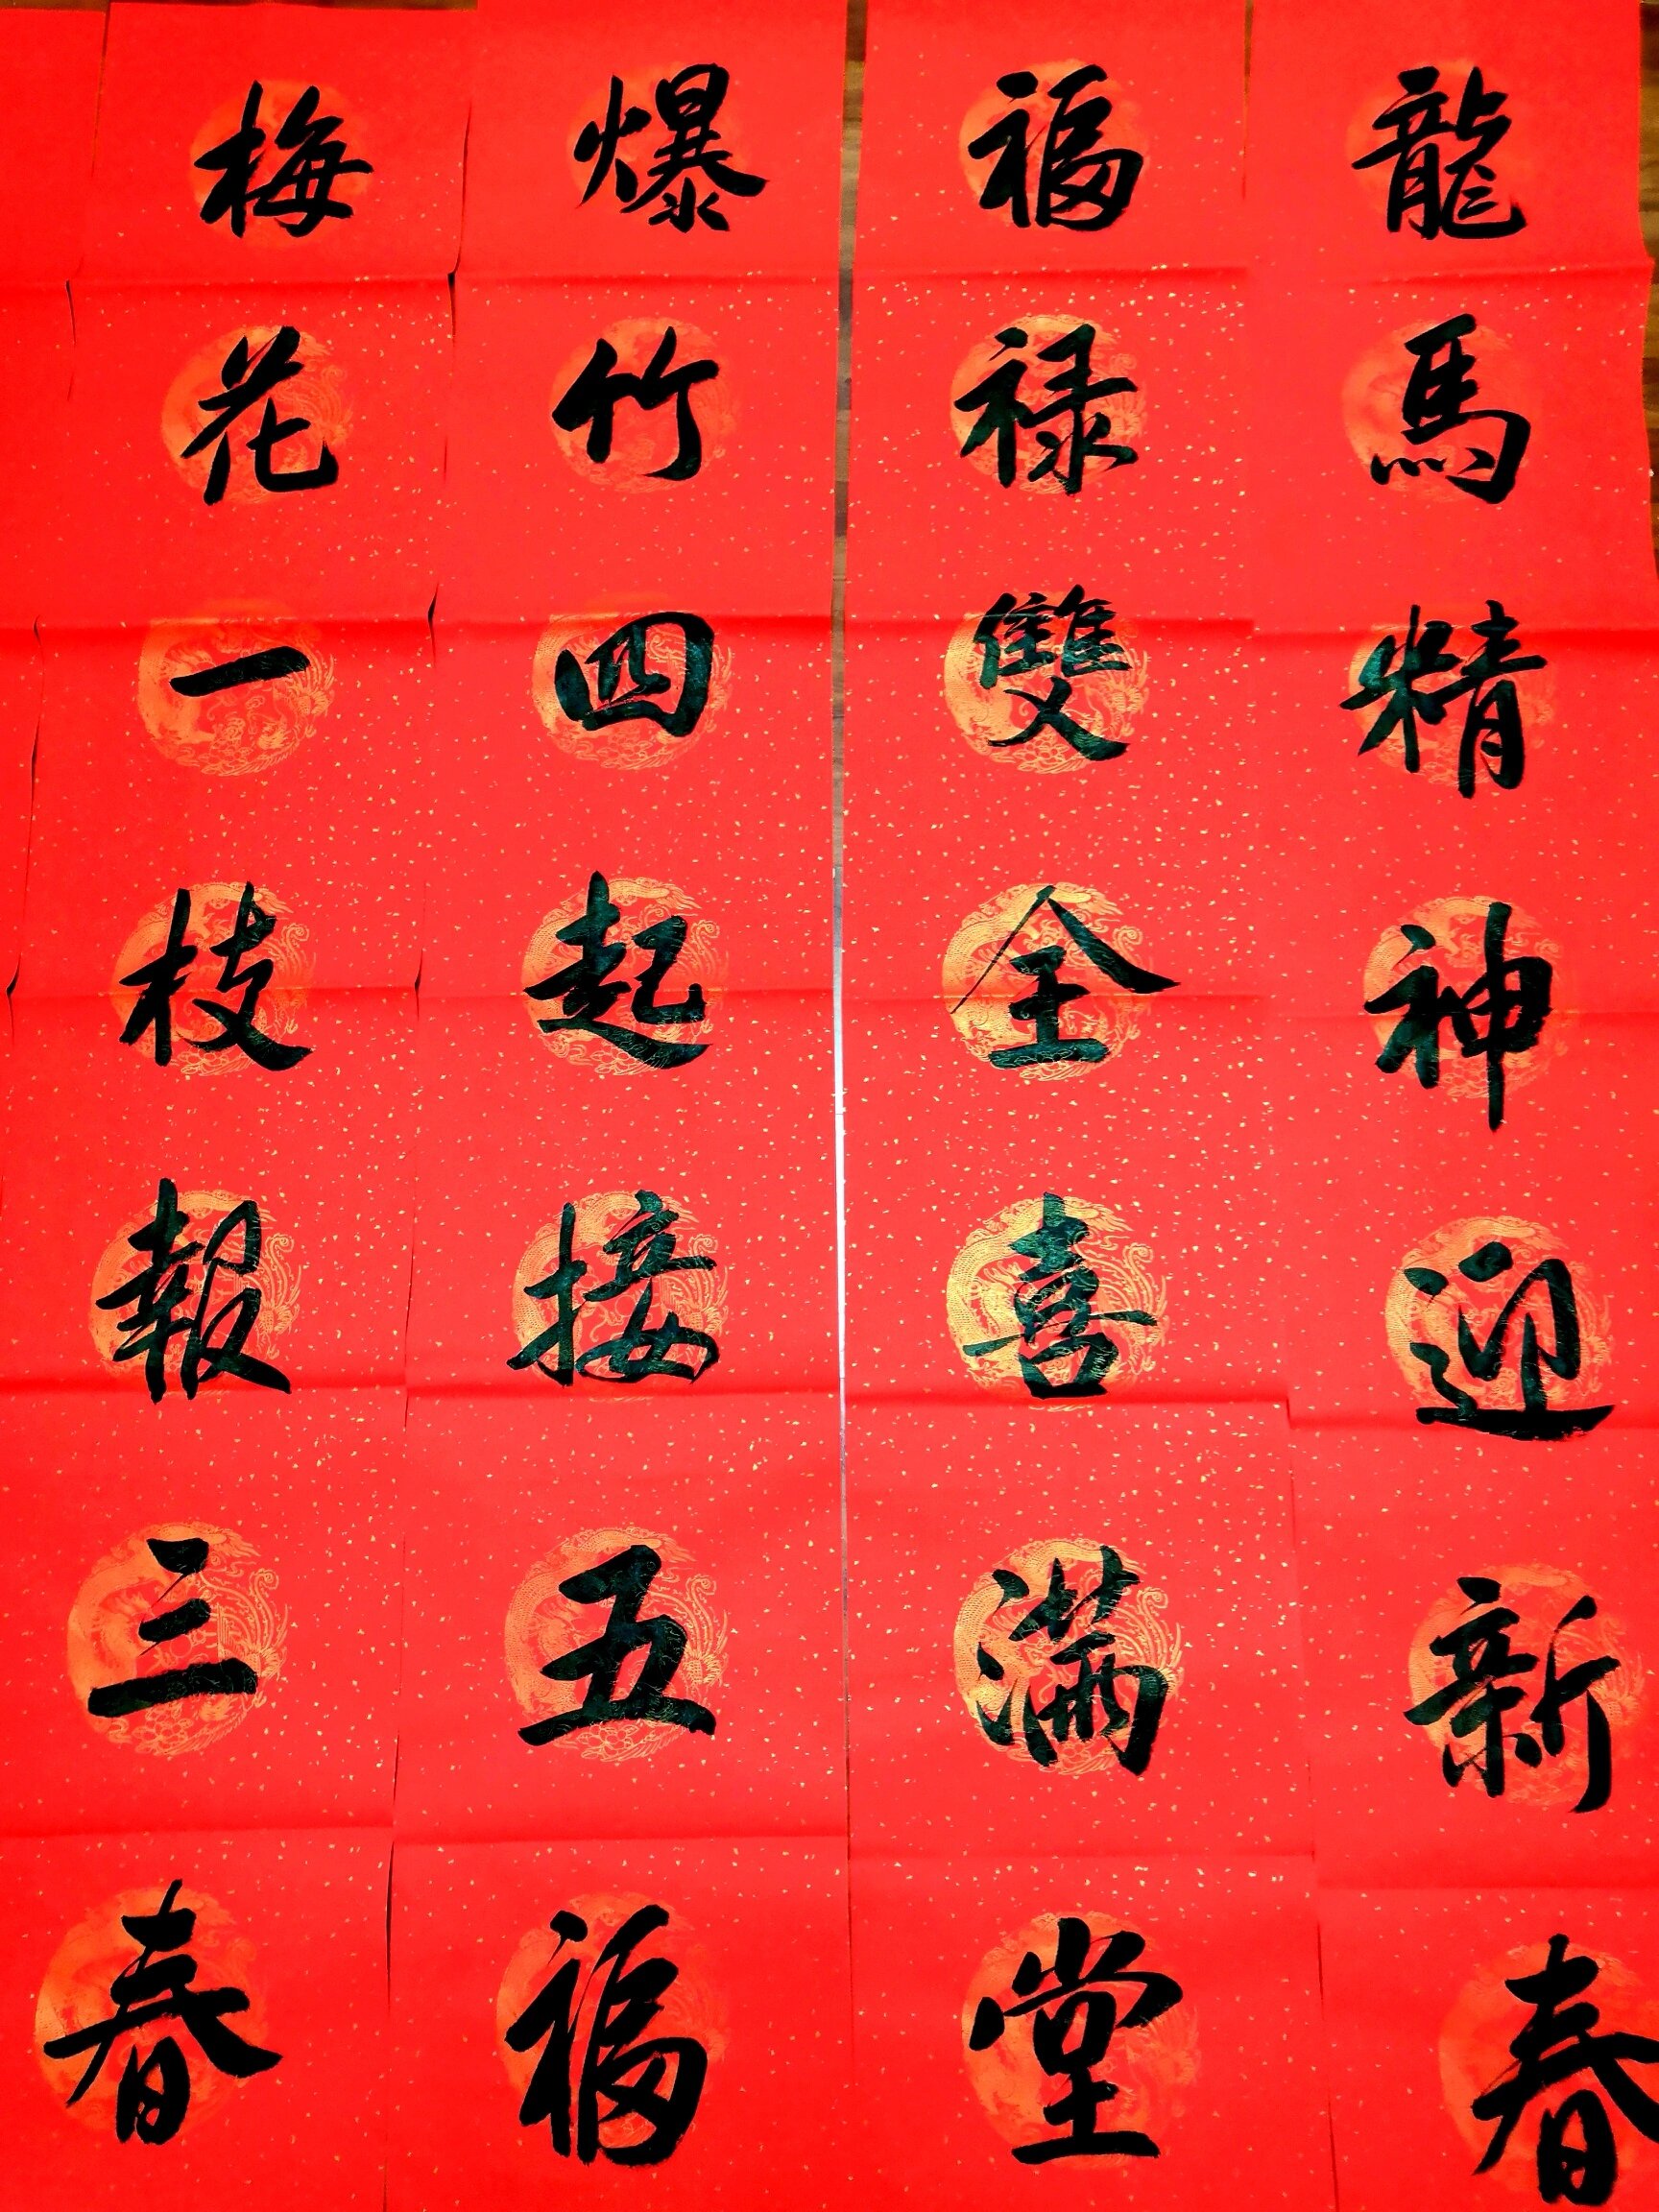 龍馬精神迎新春
福禄雙全喜滿堂
爆竹四起接五福
梅花一枝報三春